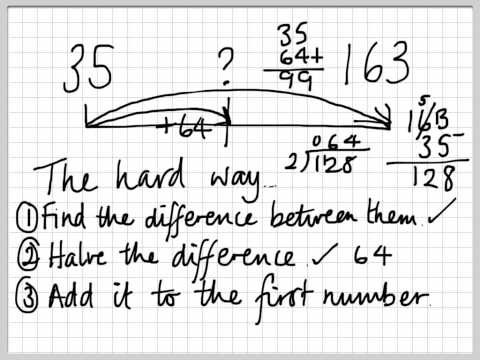 35
64+
99
35 ? 163
+64
064
2)128
5
163
35-
128
The hard way...
① Find the difference between them. ✓
② Halve the difference. ✓ 64
③ Add it to the first number.